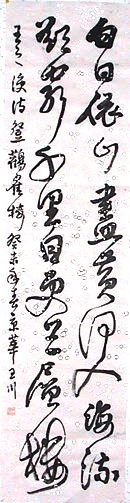 白日依山盡黃河入海流
欲窮千里目更上一層樓
王之渙詩登鸛雀樓 癸未年春 京華 王川